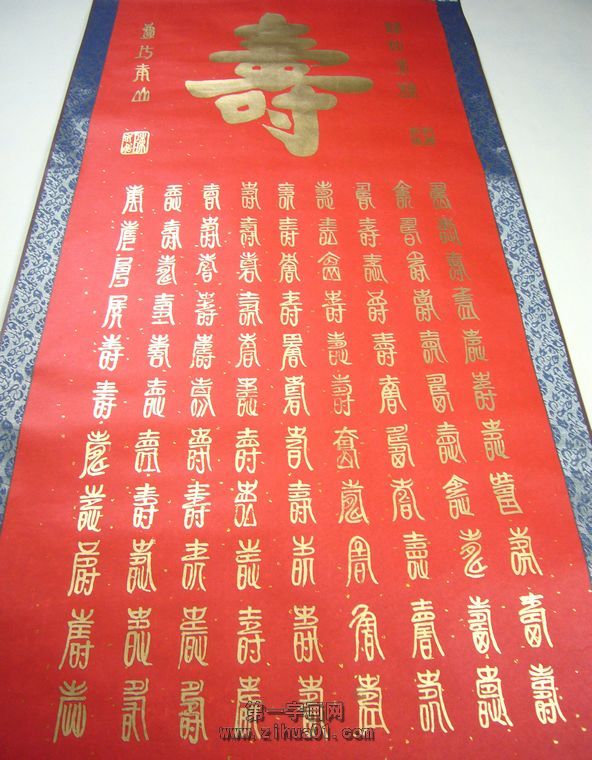 福如東海
壽
壽比南山
壽壽壽壽壽壽壽壽壽壽壽
壽壽壽壽壽壽壽壽壽壽壽
壽壽壽壽壽壽壽壽壽壽壽
壽壽壽壽壽壽壽壽壽壽壽
壽壽壽壽壽壽壽壽壽壽壽
壽壽壽壽壽壽壽壽壽壽壽
壽壽壽壽壽壽壽壽壽壽壽
壽壽壽壽壽壽壽壽壽壽壽
壽壽壽壽壽壽壽壽壽壽壽
第一字画网
www.zihua01.com